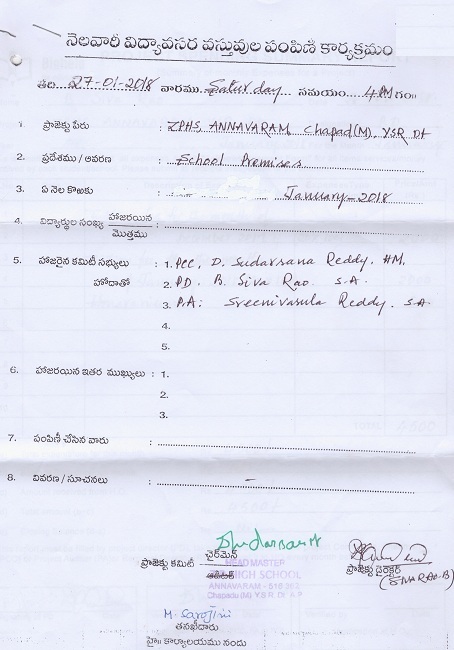 నెలవారీ విద్యావసర వస్తువుల పంపిణీ కార్యక్రమం
తేది...27-01-2018 వారము..Saturday... సమయం....4PM గం॥
1. ప్రాజెక్టు పేరు : ZPHS ANNAVARAM, Chapad(M), YSR Dt
2. ప్రదేశము / ఆవరణ : School Premises
3. ఏ నెల కొఱకు : January-2018
4. విద్యార్థుల సంఖ్య హాజరయిన
మొత్తము :
5. హాజరైన కమిటీ సభ్యులు : 1. PCC, D. Sudarsana Reddy. HM,
హోదాతో 2. PD. B. Siva Rao. S.A.
3. PA: Sreenivasula Reddy. S.A.
4.
5.
6. హాజరయిన ఇతర ముఖ్యులు : 1.
2.
3.
7. పంపిణీ చేసిన వారు :
8. వివరణ / సూచనలు : -
ప్రాజెక్టు కమిటీ ఛైర్మెన్
HEAD MASTER
HIGH SCHOOL
ANNAVARAM
Chapadu (M) Y.S.R. Dt. A.P
ప్రాజెక్టు డైరెక్టర్
(SIVARAO.B)
M. Sarojini
తనఖీదారు
హై॥ కార్యాలయము నందు